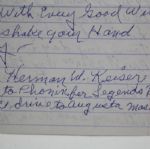 With Every Good Wi
shake your Hand
Herman W. Keiser
to Phonix for Legends
drive to Augusta Mas